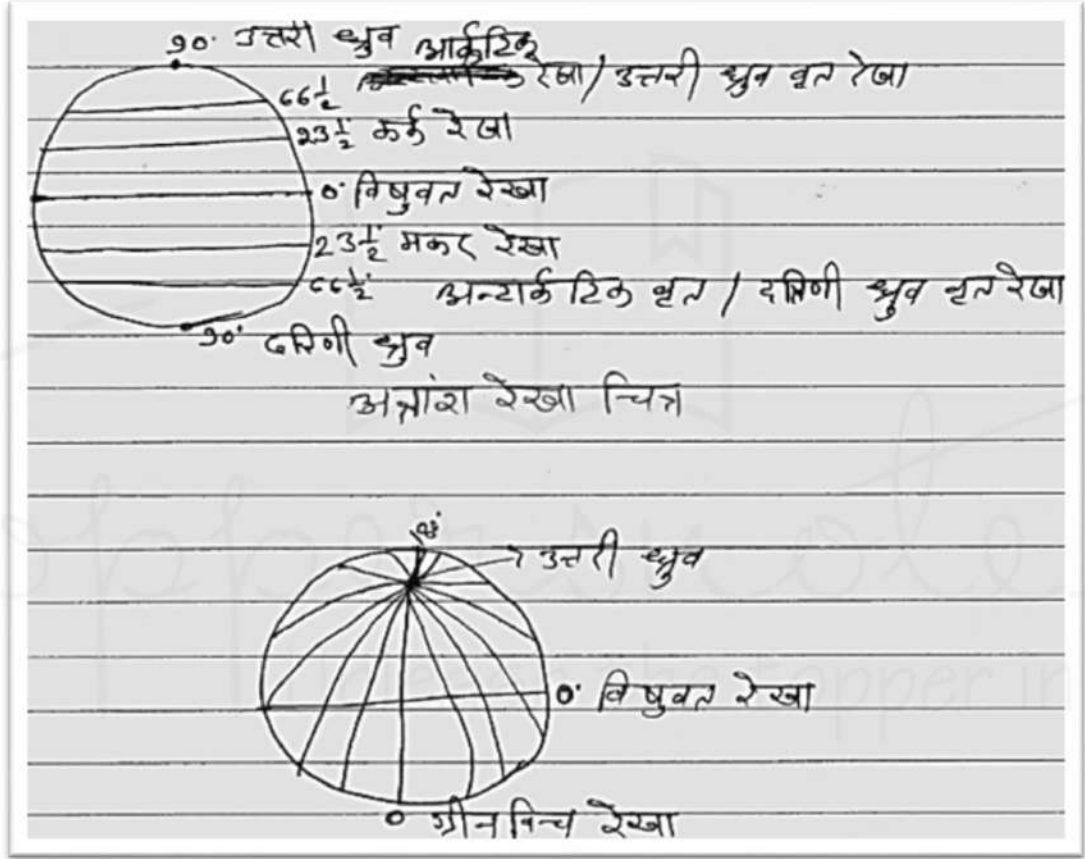 90° उत्तरी ध्रुव
66½ आर्कटिक रेखा / उत्तरी ध्रुव वृत रेखा
23½° कर्क रेखा
0° विषुवत रेखा
23½° मकर रेखा
66½° अन्टार्कटिक वृत / दक्षिणी ध्रुव वृत रेखा
90° दक्षिणी ध्रुव
अक्षांश रेखा चित्र
उत्तरी ध्रुव
0° विषुवत रेखा
0 ग्रीनविच रेखा